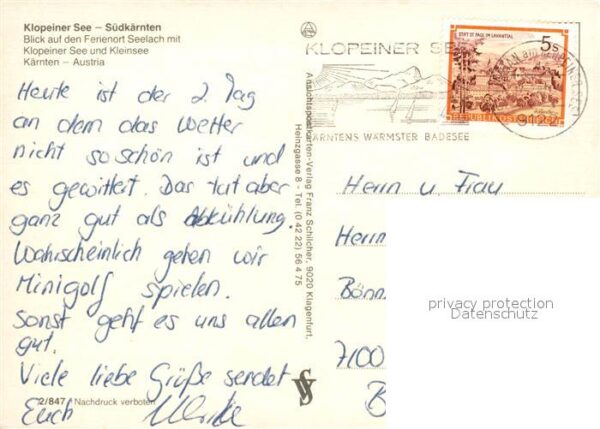 Klopeiner See – Südkärnten
Blick auf den Ferienort Seelach mit
Klopeiner See und Kleinsee
Kärnten – Austria
Heute ist der 2. Tag
an dem das Wetter
nicht so schön ist und
es gewittert. Das tut aber
ganz gut als Abkühlung.
Wahrscheinlich gehen wir
Minigolf spielen.
Sonst geht es uns allen
gut.
Viele liebe Grüße sendet
Euch Ulrike
2/847 Nachdruck verboten
Ansichtspostkarten-Verlag Franz Schilcher, 9020 Klagenfurt,
Heinzgasse 8 - Tel. (0 42 22) 56 4 75
KLOPEINER SEE
KÄRNTENS WÄRMSTER BADESEE
STIFT ST. PAUL IM LAVANTTAL
5s
REPUBLIK ÖSTERREICH
9122
Herrn u. Frau
Herm
Bönn
7100
B
privacy protection
Datenschutz